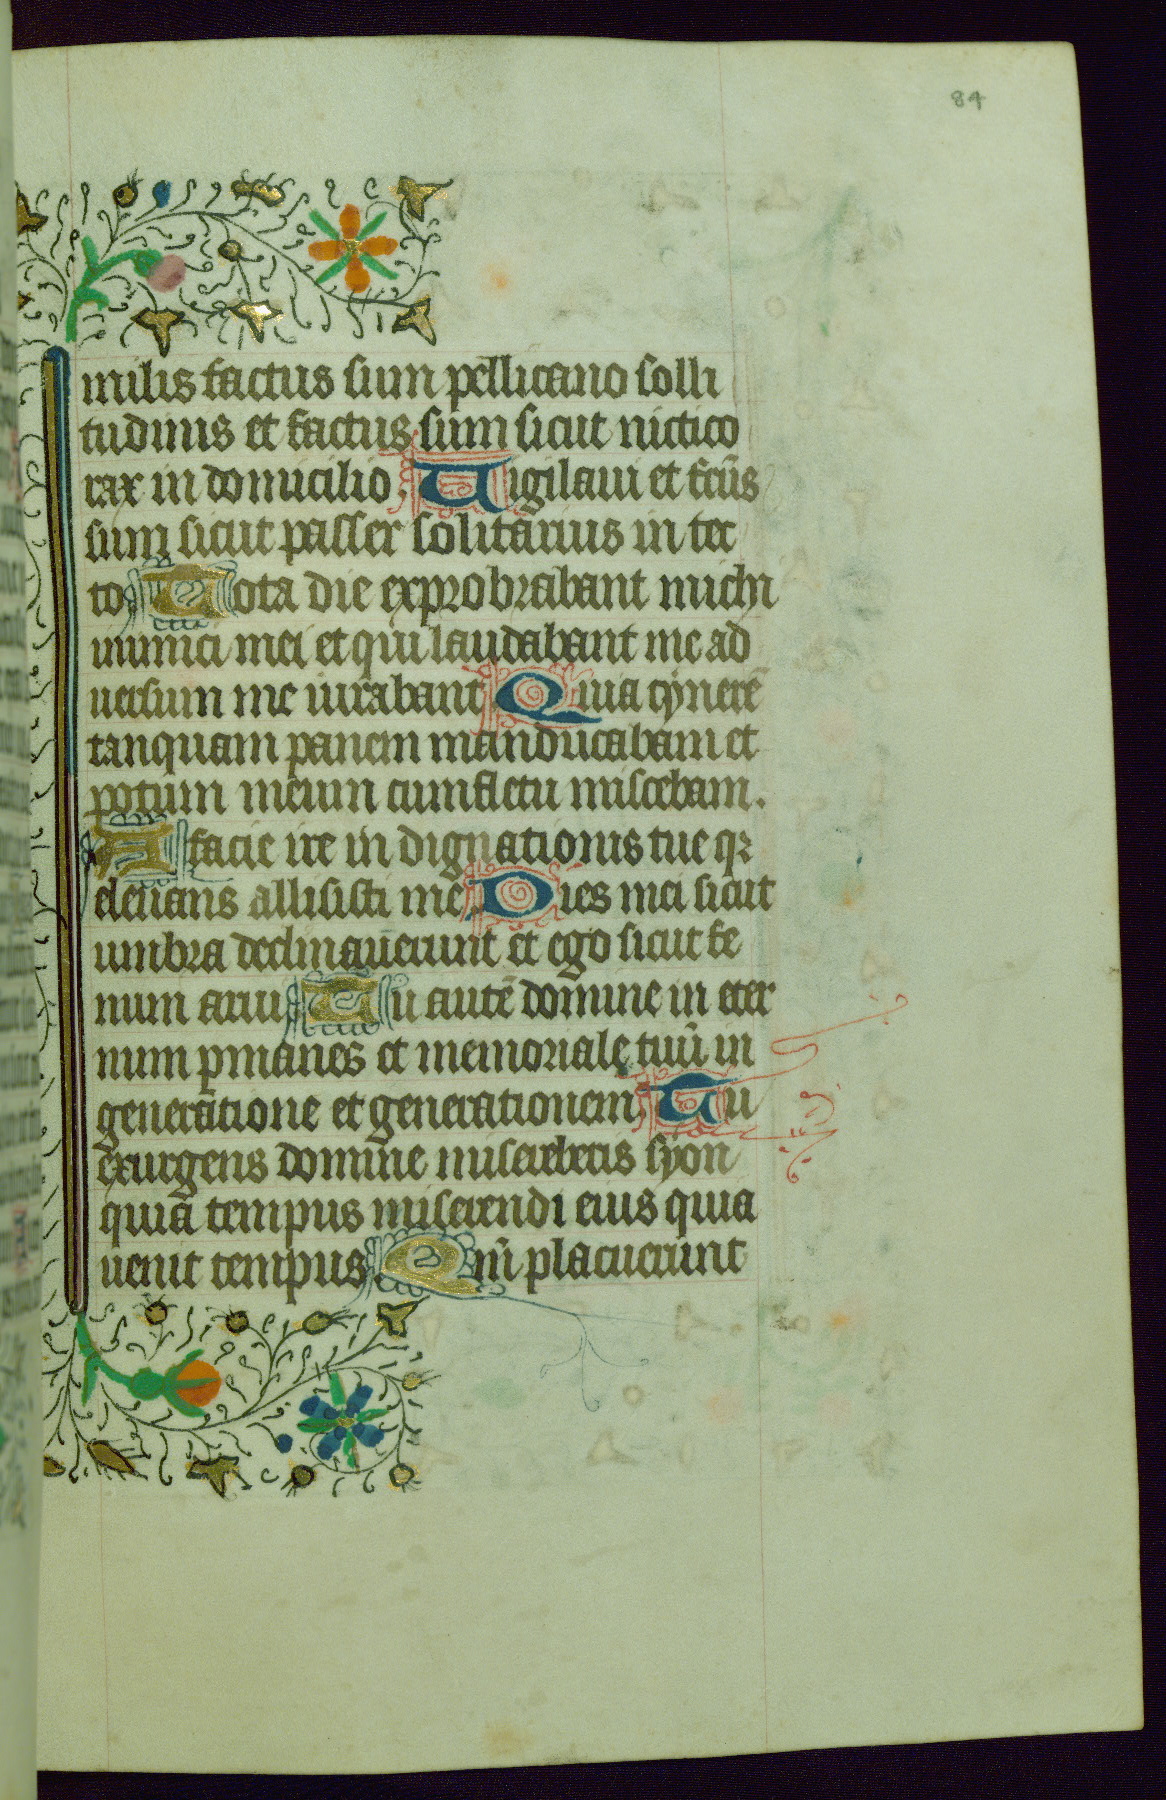 84
milis factus sum pellicano solli
tudinis et factus sum sicut nictico
rax in domicilio. Uigilaui et fcũs
sum sicut passer solitarius in tec
to Tota die exprobrabant michi
inimici mei et qui laudabant me ad
uersum me iurabant Quia cynerē
tanquam panem manducabam et
potum meum cum fletu miscebam.
A facie ire in dignationis tue qꝛ
eleuans allisisti me Dies mei sicut
umbra declinauerunt et ego sicut fe
num arui Tu autē domine in eter
num ꝑmanes et memoriale tuū in
generatione et generationem. Tu
exurgens domine misereberis syon
quia tempus miserendi eius quia
uenit tempus Qm̄ placuerunt